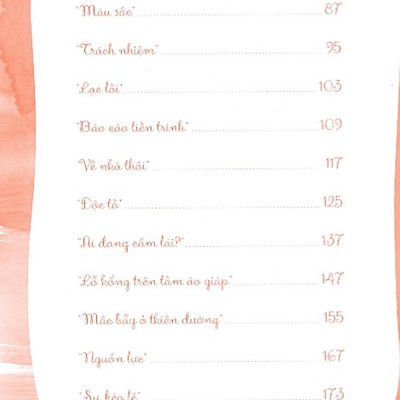 "Màu sắc" 87
"Trách nhiệm" 95
"Lạc lối" 103
"Báo cáo tiến trình" 109
"Về nhà thôi" 117
"Độc tố" 125
"Ai đang cầm lái?" 137
"Lỗ hổng trên tấm áo giáp" 147
"Mắc bẫy ở thiên đường" 155
"Nguồn lực" 167
"Sự kéo lê" 173